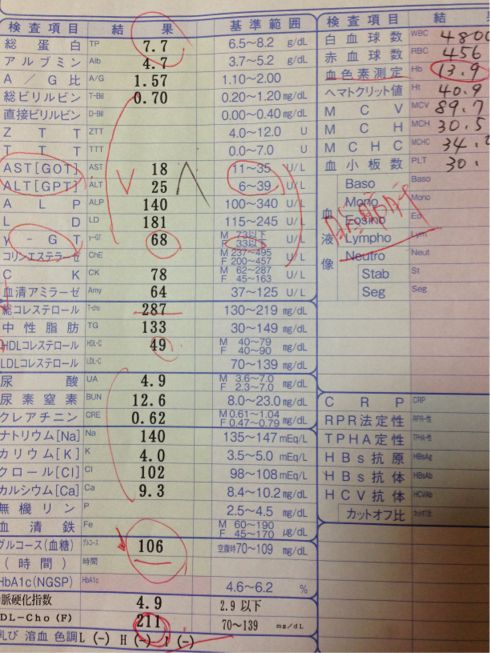 検査項目 結果 基準範囲
総蛋白 TP 7.7 6.5〜8.2 g/dL
アルブミン Alb 4.7 3.7〜5.2 g/dL
A/G比 A/G 1.57 1.10〜2.00
総ビリルビン T-Bil 0.70 0.20〜1.20 mg/dL
直接ビリルビン D-Bil 0.00〜0.40 mg/dL
ZTT ZTT 4.0〜12.0 U
TTT TTT 0.0〜7.0 U
AST[GOT] AST 18 11〜35 U/L
ALT[GPT] ALT 25 6〜39 U/L
ALP ALP 140 100〜340 U/L
LD LD 181 115〜245 U/L
γ-GT γ-GT 68 M 73以下 F 33以下 U/L
コリンエステラーゼ ChE M 237〜495 F 200〜457 U/L
CK CK 78 M 62〜287 F 45〜163 U/L
血清アミラーゼ Amy 64 37〜125 U/L
総コレステロール T-cho 287 130〜219 mg/dL
中性脂肪 TG 133 30〜149 mg/dL
HDLコレステロール HDL-C 49 M 40〜79 F 40〜90 mg/dL
LDLコレステロール LDL-C 70〜139 mg/dL
尿酸 UA 4.9 M 3.6〜7.0 F 2.3〜7.0 mg/dL
尿素窒素 BUN 12.6 8.0〜23.0 mg/dL
クレアチニン CRE 0.62 M 0.61〜1.04 F 0.47〜0.79 mg/dL
ナトリウム[Na] Na 140 135〜147 mEq/L
カリウム[K] K 4.0 3.5〜5.0 mEq/L
クロール[Cl] Cl 102 98〜108 mEq/L
カルシウム[Ca] Ca 9.3 8.4〜10.2 mg/dL
無機リン P 2.5〜4.5 mg/dL
血清鉄 Fe M 60〜190 F 45〜170 μg/dL
グルコース(血糖) グルコース 106 空腹時70〜109 mg/dL
(時間) 時間
HbA1c(NGSP) HbA1c 4.6〜6.2 %
脈硬化指数 4.9 2.9 以下
DL-Cho (F) 211 70〜139 mg/dL
乳び 溶血 色調 L (-) H (-) I (-)
検査項目 結
白血球数 WBC 4800
赤血球数 RBC 456
血色素測定 Hb 13.9
ヘマトクリット値 Ht 40.9
MCV MCV 89.7
MCH MCH 30.5
MCHC MCHC 34.
血小板数 PLT 30.
血液像
Baso Baso
Mono Mo
Eosino Eo
Lympho Lym
Neutro Neut
Stab St
Seg Seg
CRP CRP
RPR法定性 RPR-性
TPHA定性 TPHA-性
HBs抗原 HBsAg
HBs抗体 HBsAb
HCV抗体 HCVAb
カットオフ比 カットオフ比